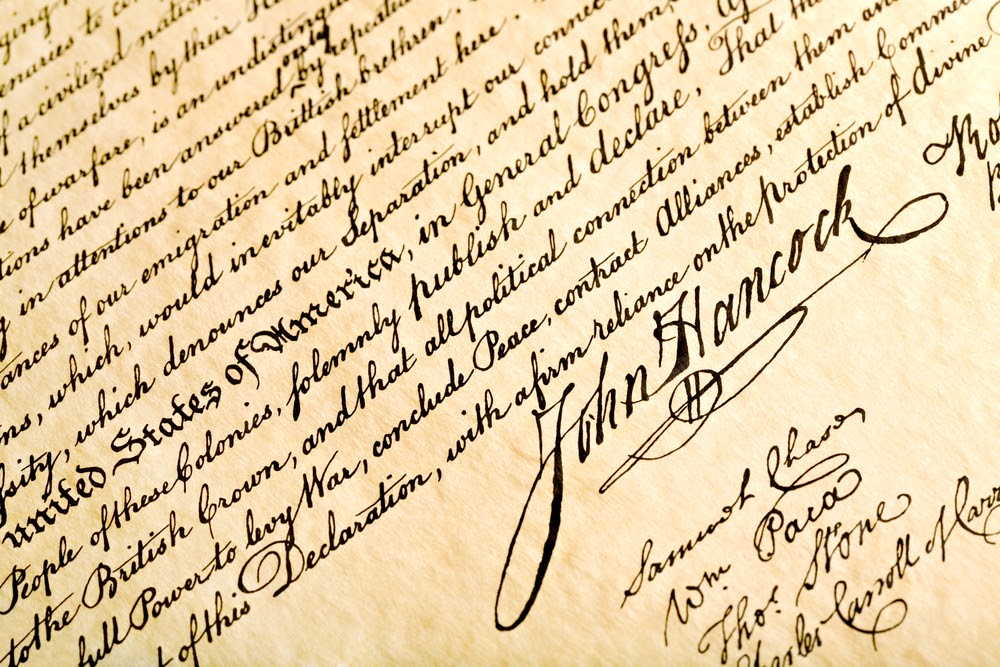 of a civilized nation
themselves by their
of warfare, is an
have been answered only by repeated
in attentions to our Brittish brethren.
ances of our emigration and ſettlement here.
ns, which, would inevitably interrupt our connec
ſsity, which denounces our Separation, and hold them,
united States of America, in General Congreſs,
People of these Colonies, ſolemnly publish and declare, That
to the British Crown, and that all political connection between them and
full Power to levy War, conclude Peace, contract Alliances, establish Comme
of this Declaration, with a firm reliance on the protection of divine
John Hancock
Samuel Chase,
Wm Paca
Thos. Stone
Charles Carroll of Carr